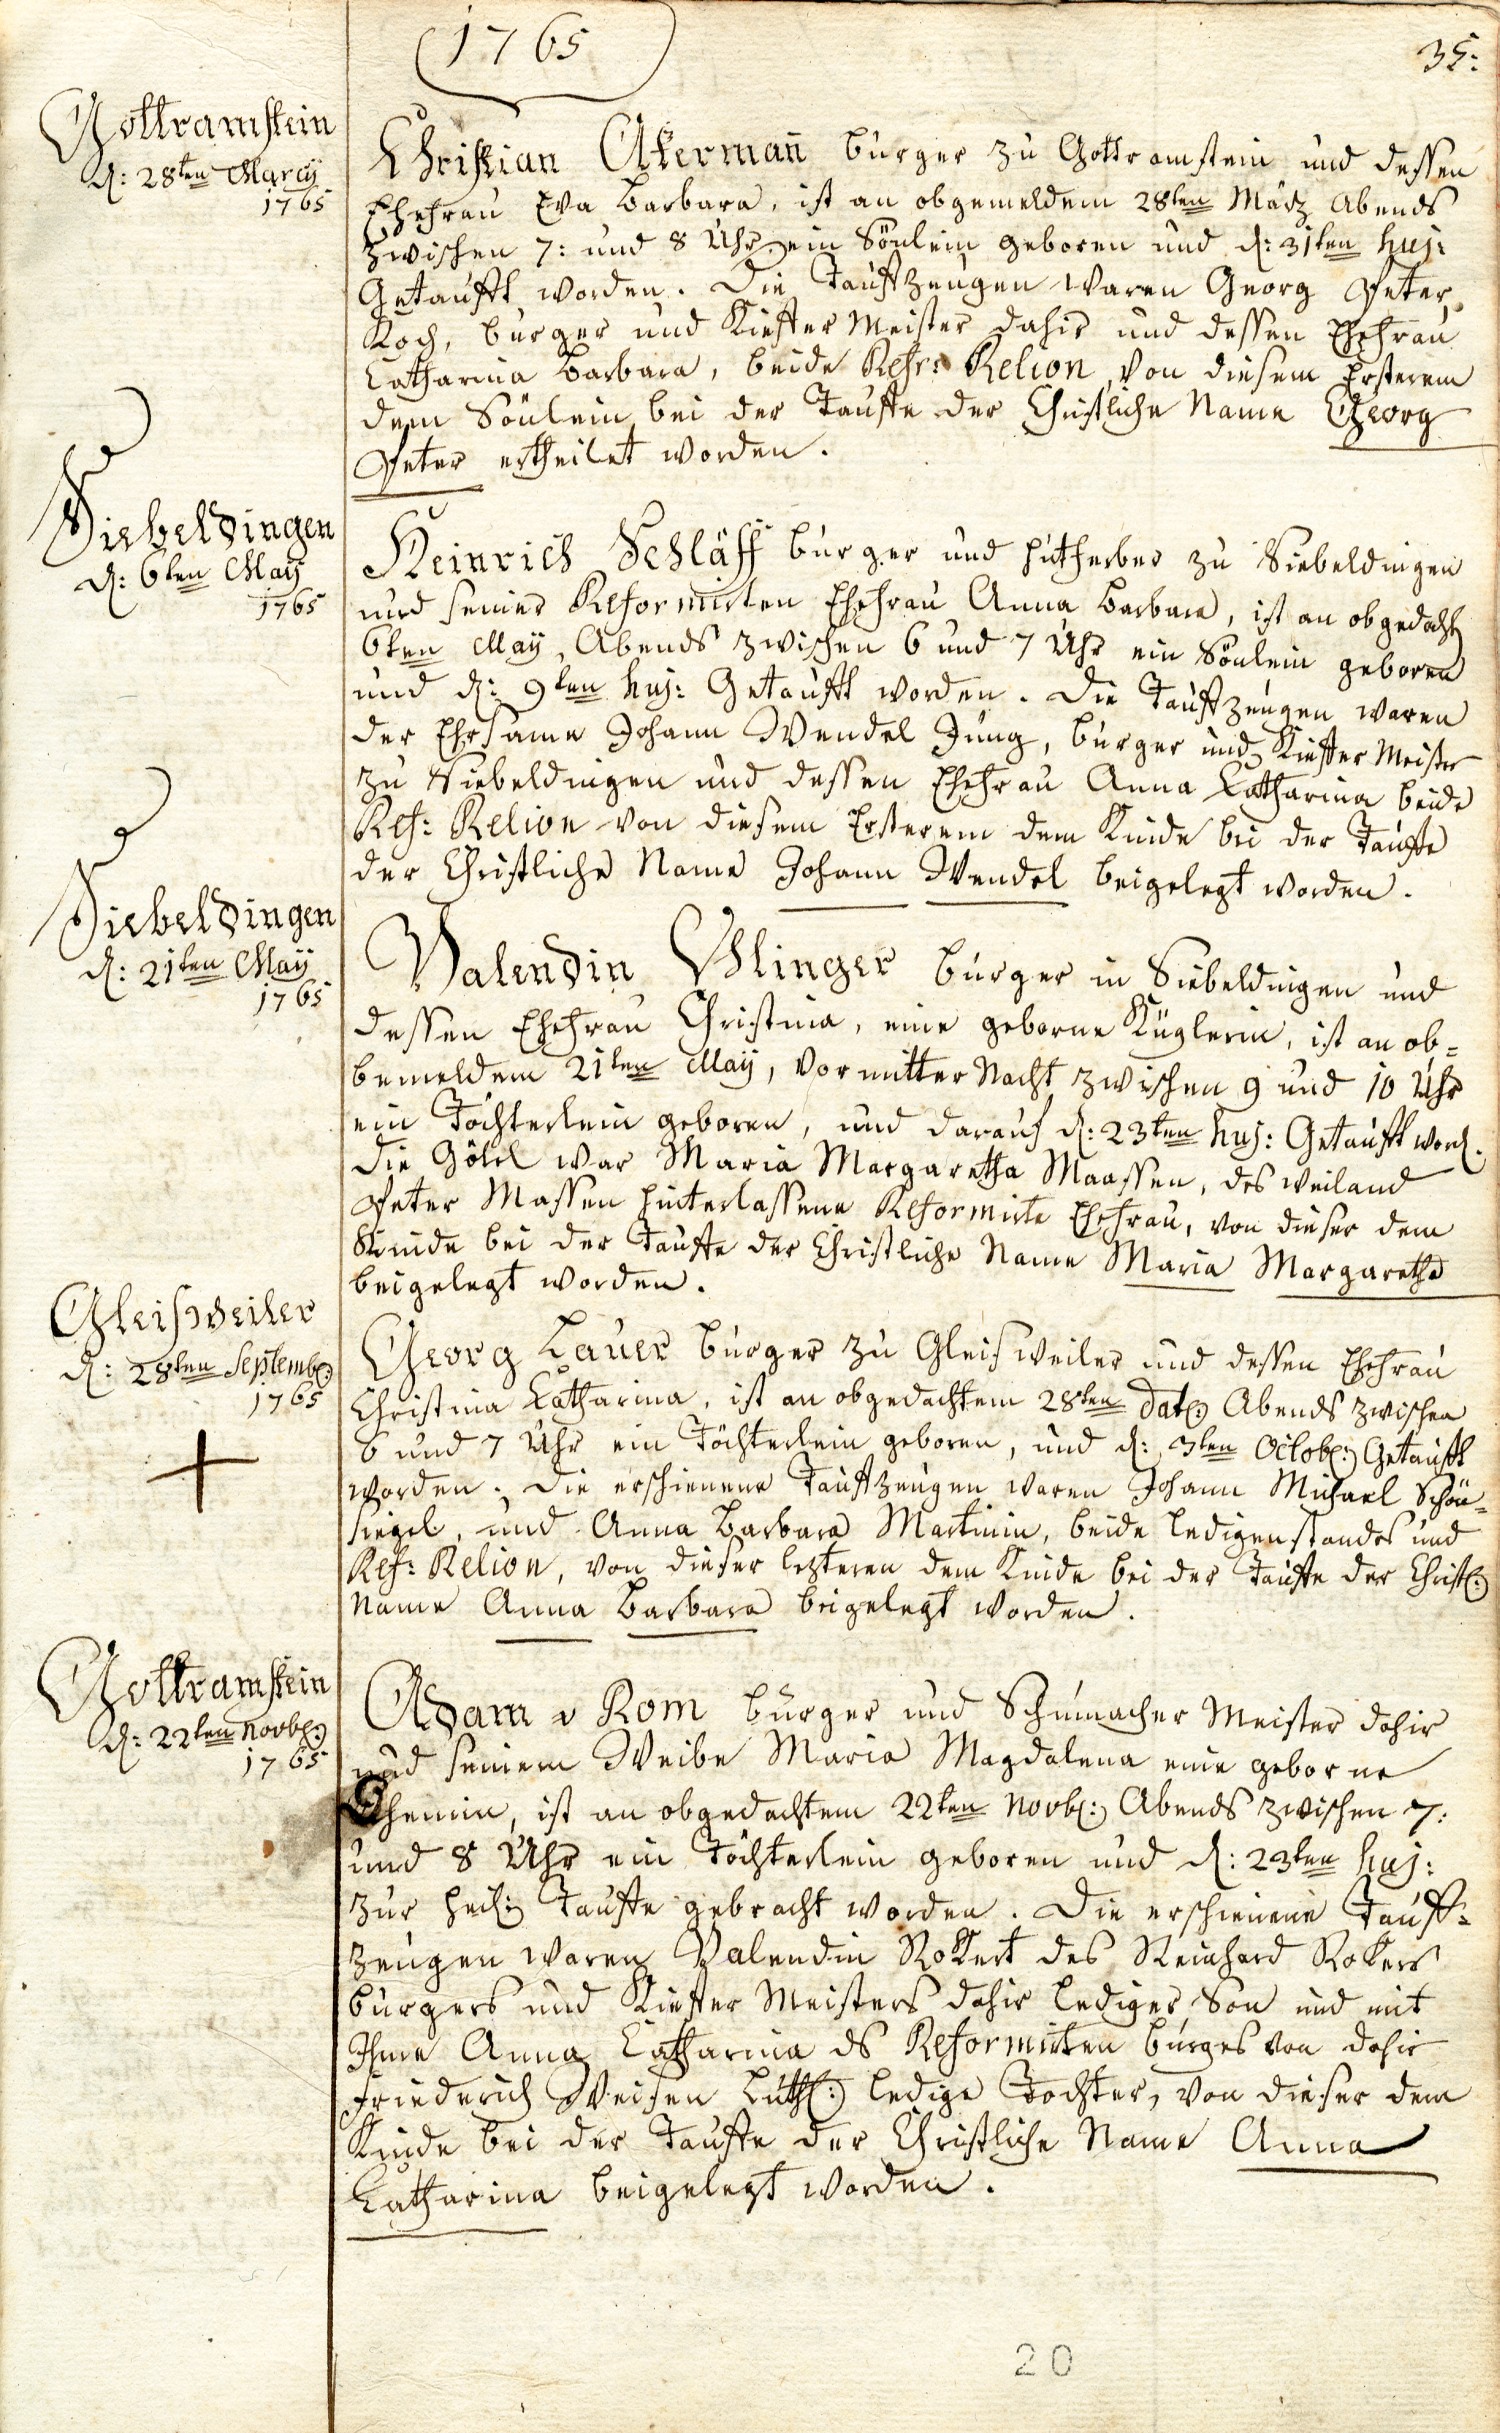 1765
35:
Gottramstein
d: 28ten Marcij
1765
Christian Akerman̄ burger zu Gottramstein und dessen
Ehefrau Eva Barbara, ist an obgemeldem 28ten Märtz Abends
zwischen 7: und 8 Uhr ein Sönlein geboren und d: 31ten huj:
Getaufft worden. Die Tauffzeugen waren Georg Peter
Koch, burger und Kieffer Meister dahir und dessen Ehefrau
Catharina Barbara, beide Refr: Relion, von diesem Ersterem
dem Sönlein bei der Tauffe der Christliche Name Georg
Peter ertheilet worden.
Siebeldingen
d: 6ten Maij
1765
Heinrich Schläff burger und zu Siebeldingen
und seiner Reformirten Ehefrau Anna Barbara, ist an obgedacht
6ten Maij, Abends zwischen 6 und 7 Uhr ein Sönlein geboren
und d: 9ten huj: Getaufft worden. Die Tauffzeugen waren
der Ehrsame Johann Wendel Jung, burger und Kieffer Meister
zu Siebeldingen und dessen Ehefrau Anna Catharina beide
Ref: Relion von diesem Ersterem dem Kinde bei der Tauffe
der Christliche Name Johann Wendel beigelegt worden.
Siebeldingen
d: 21ten Maij
1765
Valendin burger in Siebeldingen und
dessen Ehefrau Christina, eine geborne Küglerin, ist an ob=
bemeldem 21ten Maij, vor mitter Nacht zwischen 9 und 10 Uhr
ein Töchterlein geboren, und darauf d: 23ten huj: Getaufft word.
die Götel war Maria Margaretha Maassen, des weiland
Peter Massen hinterlassene Reformirte Ehefrau, von dieser dem
Kinde bei der Tauffe der Christliche Name Maria Margaretha
beigelegt worden.
Gleisweiler
d: 28ten Septemb:
1765
Georg Lauer burger zu Gleisweiler und dessen Ehefrau
Christina Catharina, ist an obgedachtem 28ten dat: Abends zwischen
6 und 7 Uhr ein Töchterlein geboren, und d: 3ten Octob: Getaufft
worden. Die erschienene Tauffzeugen waren Johann Michael Schön=
siegel, und Anna Barbara Martinin, beide ledigenstandes und
Ref: Relion, von dieser lezteren dem Kinde bei der Tauffe der Christl:
Name Anna Barbara beigelegt worden.
Gottramstein
d: 22ten Novb:
1765
Adam v Rom bürger und Schumacher Meister dahir
und seinem Weibe Maria Magdalena eine geborne
ist an obgedachtem 22ten Novb: Abends zwischen 7:
und 8 Uhr ein Töchterlein geboren und d: 23ten huj:
zur heil: Tauffe gebracht worden. Die erschienene Tauff=
zeugen waren Valendin Rokert des Reinhard Rokers
burgers und Kieffer Meisters dahir lediger Son und mit
Ihme Anna Catharina ds Reformirten burges von dahir
Friederich Weisen Luth: ledige Tochter, von dieser dem
Kinde bei der Tauffe der Christliche Name Anna
Catharina beigelegt worden.
20